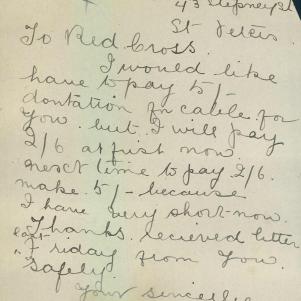 43 Stepney St
St Peters.
To Red Cross.
I would like
have to pay 5/-
dontation for cable for
you. but I will pay
2/6 at just now.
next time to pay 2/6.
make 5/- because
I have very short now.
Thanks. recieved letter
last
Friday from you.
safely.
Your sincerely